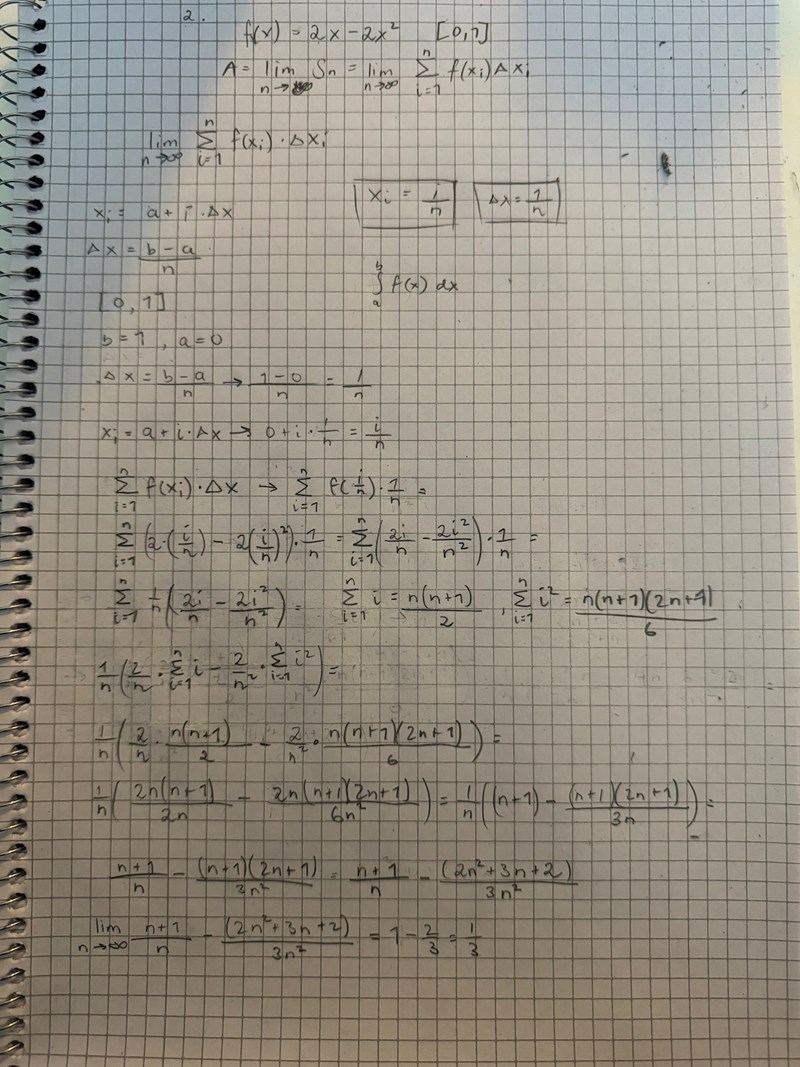 2.
f(x) = 2x - 2x² [0,1]
A = lim n→∞ Sn = lim n→∞ Σ i=1 n f(xi) Δxi
lim n→∞ Σ i=1 n f(xi) · Δxi
xi = i/n Δx = 1/n
xi = a + i · Δx
Δx = b-a/n
∫ a b f(x) dx
[0,1]
b=1, a=0
Δx = b-a/n → 1-0/n = 1/n
xi = a + i · Δx → 0 + i · 1/n = i/n
Σ i=1 n f(xi) · Δx → Σ i=1 n f(i/n) · 1/n =
Σ i=1 n (2·(i/n) - 2(i/n)²) · 1/n = Σ i=1 n (2i/n - 2i²/n²) · 1/n =
Σ i=1 n 1/n (2i/n - 2i²/n²) = Σ i=1 n i = n(n+1)/2 , Σ i=1 n i² = n(n+1)(2n+1)/6
1/n (2/n · Σ i=1 n i - 2/n² · Σ i=1 n i²) =
1/n (2/n · n(n+1)/2 - 2/n² · n(n+1)(2n+1)/6) =
1/n (2n(n+1)/2n - 2n(n+1)(2n+1)/6n²) = 1/n ((n+1) - (n+1)(2n+1)/3n) =
n+1/n - (n+1)(2n+1)/3n² = n+1/n - (2n²+3n+2)/3n²
lim n→∞ n+1/n - (2n²+3n+2)/3n² = 1 - 2/3 = 1/3